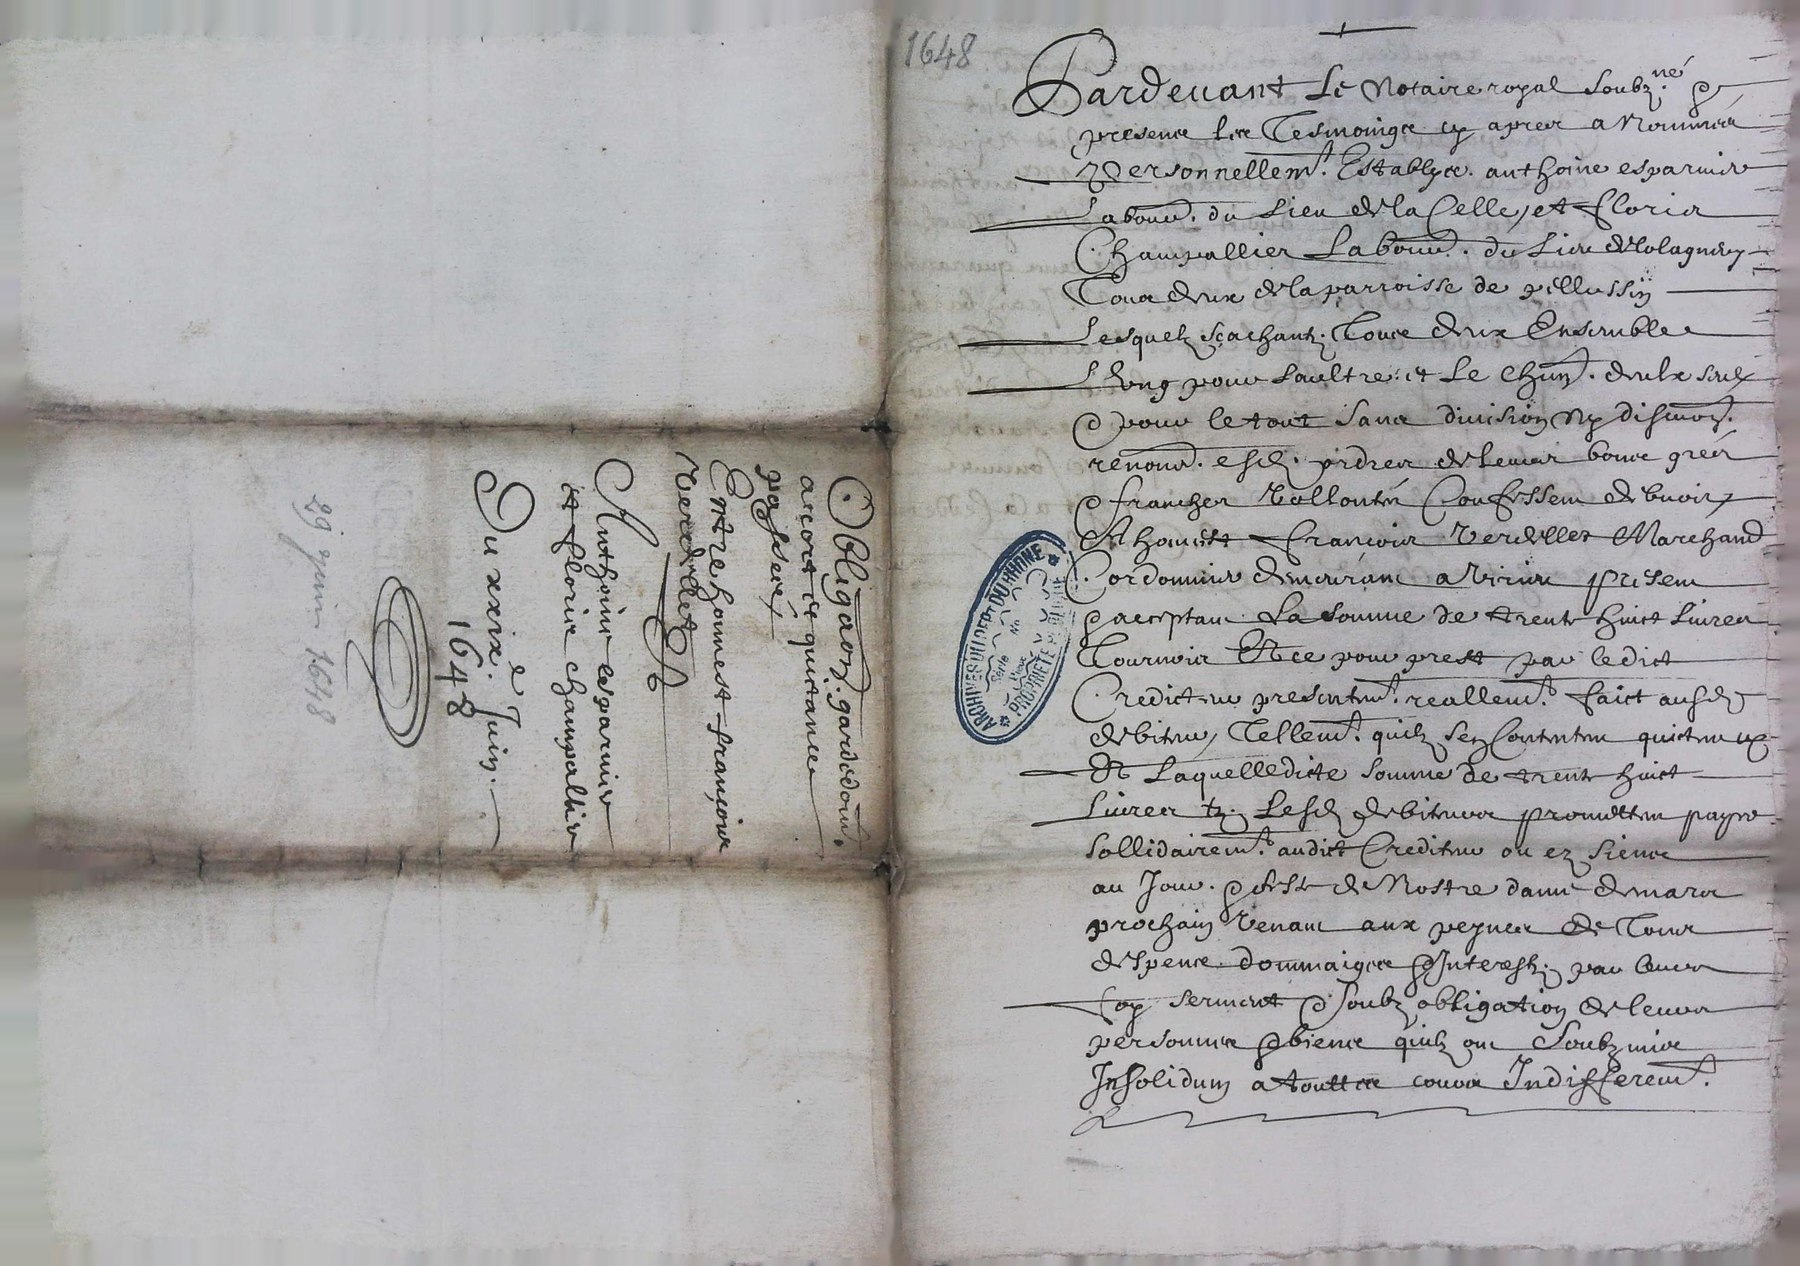 1648
Pardevant Le Notaire royal soubz.né &
presence les Tesmoings cy apres a Nommés
Personnellemt. Establys. anthoine esparvier
Labour. du Lieu de la Celle, et Floris
Champallier Labour. du Lieu de
Tous deux de la parroisse de pellussin
Lesquelz sçachantz. Tous deux Ensemble
L'ung pour Laultre. et Le chun. deulx seul
& pour le tout sans division Ny discution.
renonc. esd. de leurs bonnes grés
& franches vollontés Confessent debvoir
A honneste François Verdellet Marchand
Cordonnier demeurant a Virieu present
& acceptant La somme de trente huict Livres
Tournois Et ce pour prest par le dict
Crediteur presentemt. reallemt. faict ausd.
debiteurs, Tellemt. quilz sen Contentent quictent
Et Laquelledicte somme de trente huict
Livres tz. Lesd. debiteurs promettent payer
sollidairemt. audict Crediteur ou ez siens
au Jour. & feste de Nostre dame de mars
prochain Venant aux peynes de Tous
despens. dommaiges & Interestz. par leurs
foy serment & soubz obligation de leurs
personnes & biens quilz ont Soubzmis
Insolidum a touttes cours Indifferemt.
ARCHIVES DU DEPT DU RHONE
PROPRIETE PUBLIQUE
Obligaon. garidedour.
accort et quittance
passée
Entre honnest françois
Verdellet
Anthoine esparvier
et floris champallier
Du xxixe. Juin.
1648
29 juin 1648